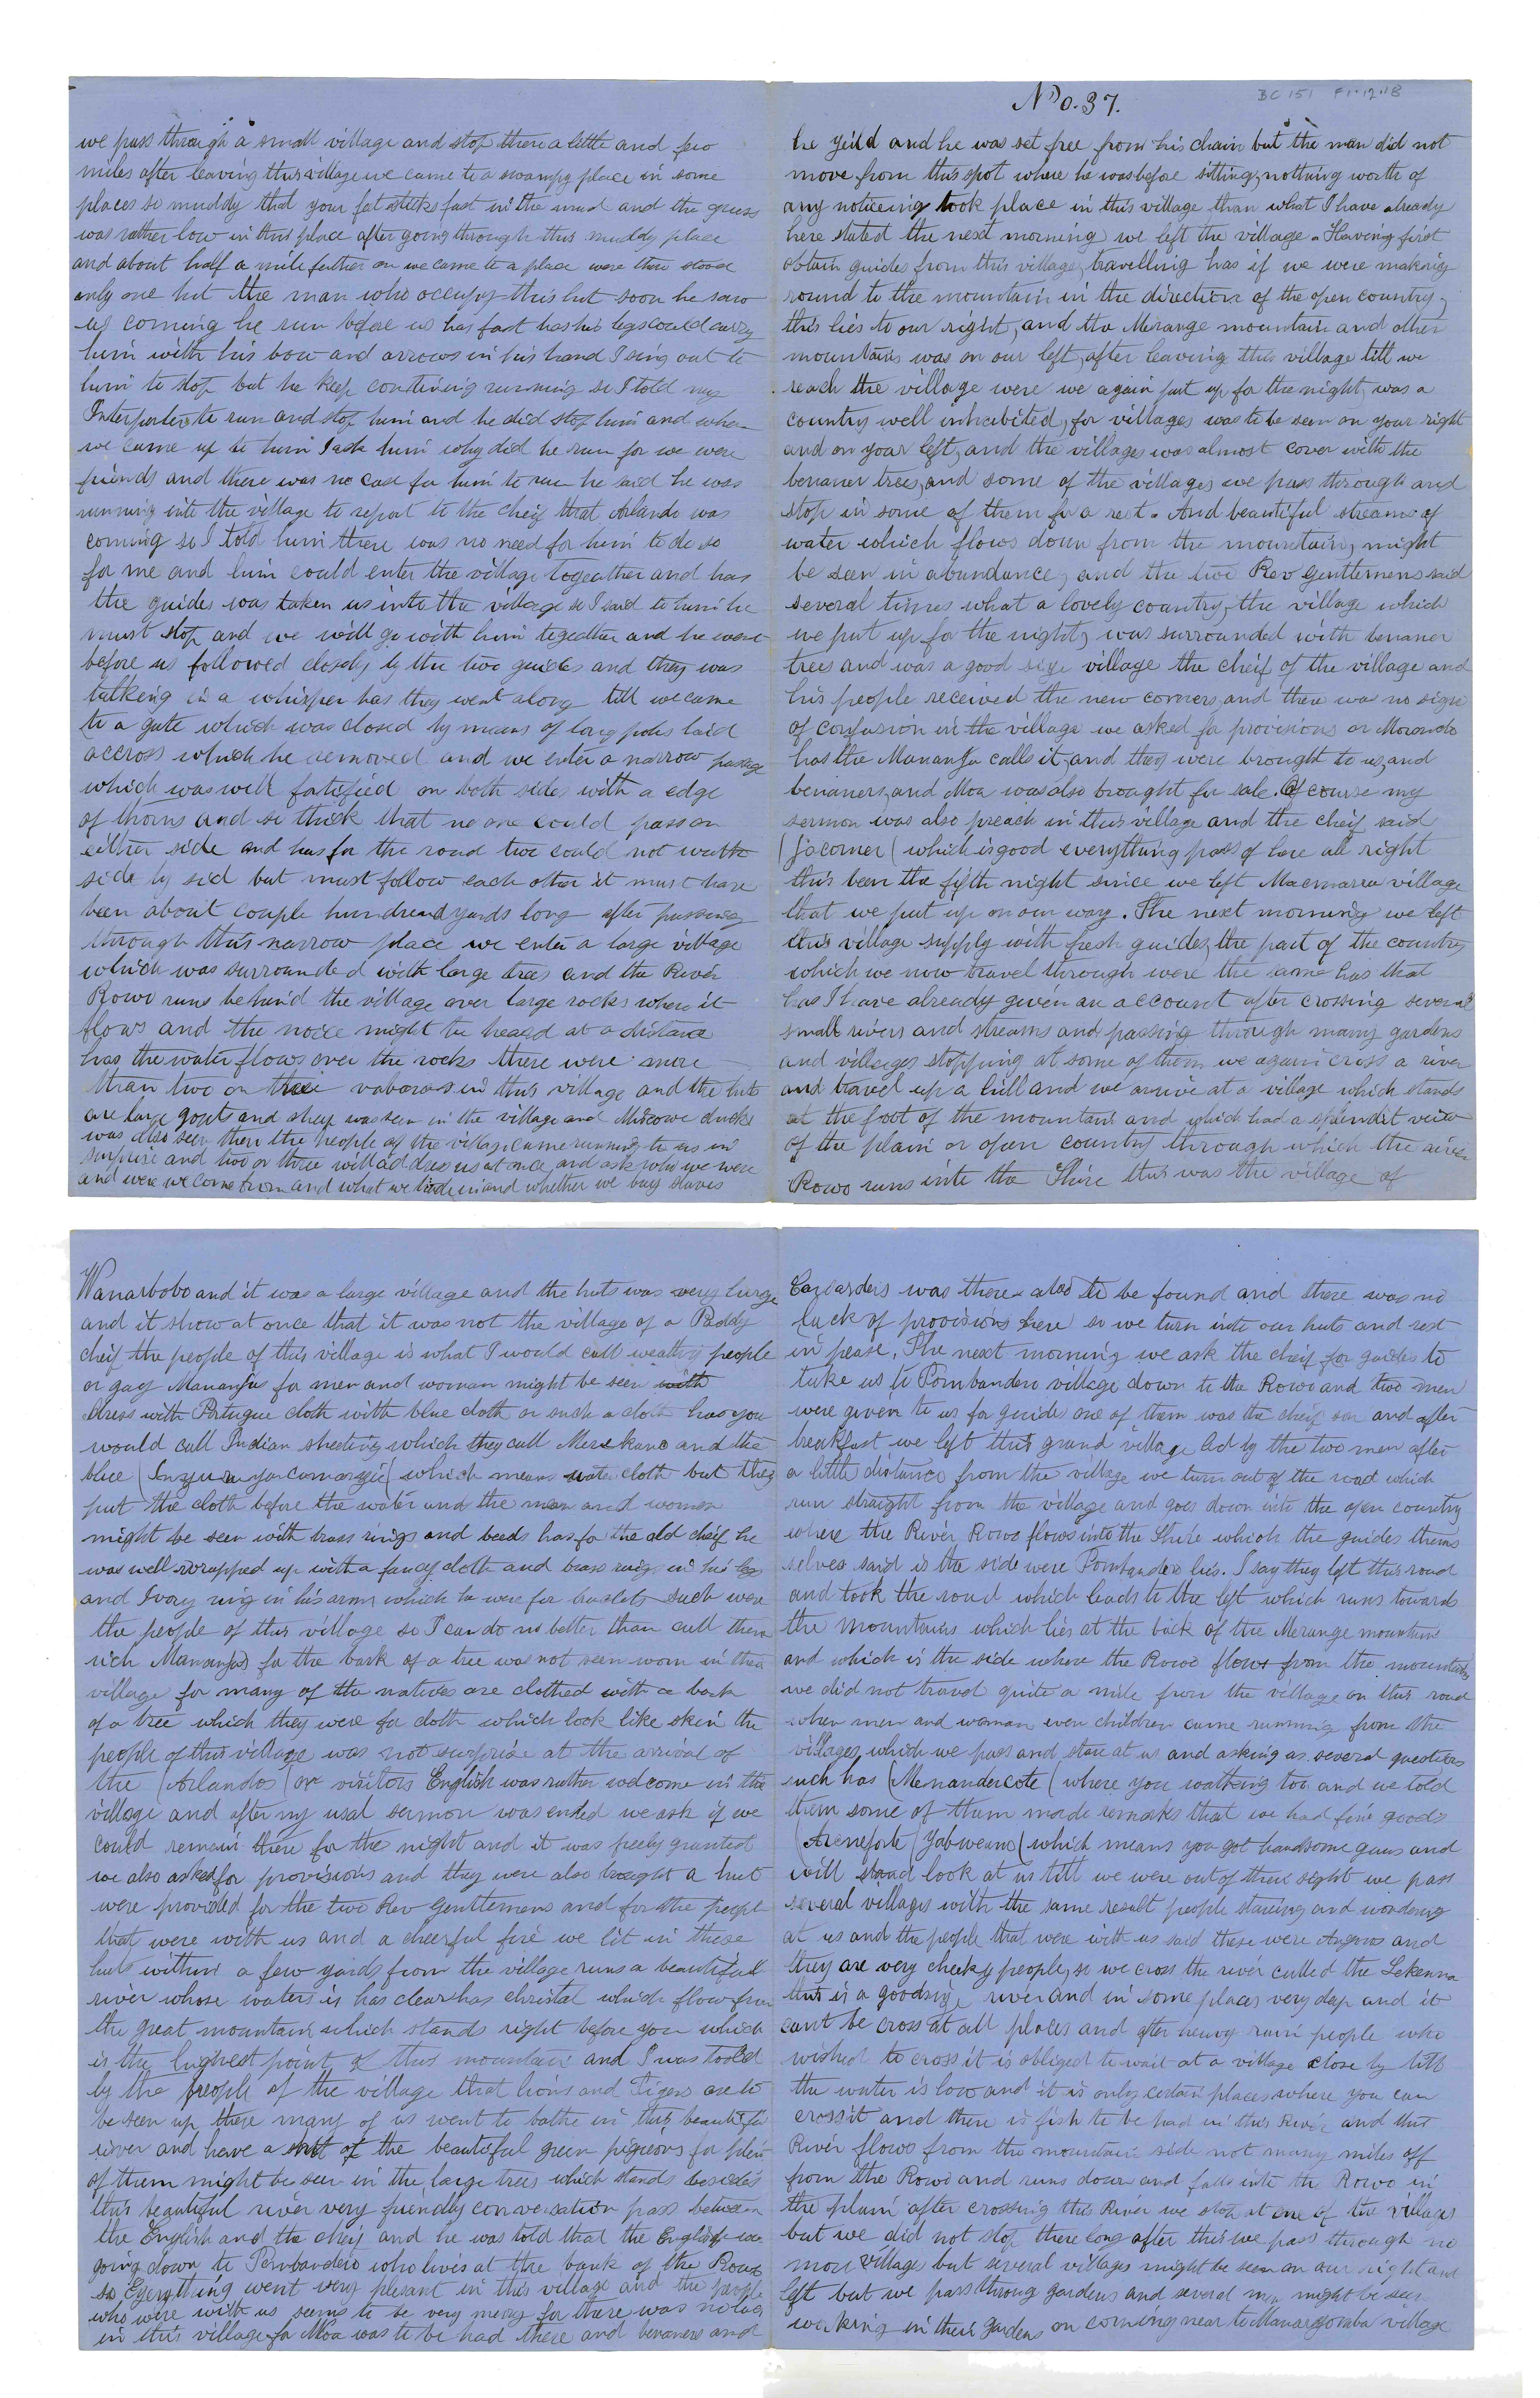 we pass through a small village and stop there a little and few
miles after leaving this village we came to a swampy place in some
places so muddy that your fet sticks fast in the mud and the grass
was rather low in this place after going through this muddy place
and about half a mile futher on we came to a place were there stood
only one hut the man who occupy this hut soon he saw
us coming he run before us has fast has his legs could carry
him with his bow and arrows in his hand I sing out to
him to stop but he keep continuing running so I told my
Interporter to run and stop him and he did stop him and when
we came up to him I ask him why did he run for we were
friends and there was no case for him to run he said he was
running into the village to report to the cheif that Arlando was
coming so I told him there was no need for him to do so
for me and him could enter the village togeather and has
the guides was taken us into the village so I said to him he
must stop and we will go with him togeather and he went
before us followed closely by the two guides and they was
talking in a whisper has they went along till we came
to a gate which was closed by means of long poles laid
accross which he removed and we enter a narrow passage
which was well fortified on both sides with a edge
of thorns and so thick that no one could pass on
either side and has for the road two could not walk
side by sid but must follow each other it must have
been about couple hundread yards long after passing
through this narrow place we enter a large village
which was surrounded with large trees and the River
Rowo runs behind the village over large rocks where it
flows and the noice might be heard at a distance
has the water flows over the rocks there were more
than two or three vabaras in this village and the huts
are large goats and sheep was seen in the village and Miscowe ducks
was also seen then the people of the village came running to us in
surprise and two or three will address us at once and ask who we were
and were we come from and what we trade in and whether we buy slaves
No. 37.
BC 151 F1.12.18
he yeild and he was set free from his chain but the man did not
move from this spot where he was before sitting, nothing worth of
any noticeing took place in this village than what I have already
here stated the next morning we left the village. Having first
obtain guides from this village, travelling has if we were making
round to the mountain in the direction of the open country,
this lies to our right, and the Merange mountain and other
mountains was on our left, after leaving this village till we
reach the village were we again put up for the night, was a
country well inhabited, for villages was to be seen on your right
and on your left, and the villages was almost cover with the
benaner trees, and some of the villages we pass through and
stop in some of them for a rest. And beautiful streams of
water which flows down from the mountain, might
be seen in abundance, and the two Rev Gentlemens said
several times what a lovely country, the village which
we put up for the night, was surrounded with benaner
trees and was a good size village the cheif of the village and
his people received the new comers, and there was no signs
of confusion in the village we asked for provisions or
has the Mananja calls it, and they were brought to us, and
benaners, and Moa was also brought for sale. Of course my
sermon was also preach in this village and the cheif said
(jocorner( which is good everything pass of here all right
this been the fifth night since we left Macmarra village
that we put up on our way. The next morning we left
this village supply with fresh guides, the part of the country
which we now travel through were the same has that
has I have already given an account after crossing several
small rivers and streams and passing through many gardens
and villages stopping at some of them we again cross a river
and travel up a hill and we arrive at a village which stands
at the foot of the mountain and which had a splendit view
of the plain or open country through which the river
Rowo runs into the Shire this was the village of
Wanarbobo and it was a large village and the huts was very large
and it show at once that it was not the village of a Paddy
cheif the people of this village is what I would call wealthy people
or gay Mananjas for men and woman might be seen with
dress with Portugue cloth with blue cloth or such a cloth has you
would call Indian sheeting which they call Merekano and the
blue which means water cloth but they
put the cloth before the water and the men and women
might be seen with brass rings and beeds has for the old cheif he
was well wrapped up with a fancy cloth and brass rings in his legs
and Ivory ring in his arms which he were for braslets such were
the people of this village so I can do no better than call them
rich Mananjas for the bark of a tree was not seen worn in this
village for many of the natives are clothed with a bark
of a tree which they were for cloth which look like skin the
people of this village was not surprise at the arrival of
the (Arlandos( or visitors English was ruther welcome in the
village and after my usal sermon was ended we ask if we
could remain there for the night and it was freely granted
we also asked for provisions and they were also brought a hut
were provided for the two Rev Gentlemens and for the peopl
that were with us and a cheerful fire we lit in these
huts within a few yards from the village runs a beautifull
river whose waters is has clear has christal which flow from
the great mountain which stands right before you which
is the highest point of this mountain and I was toold
by the people of the village that lions and Tigers are to
be seen up there many of us went to bathe in this beautiful
river and have a shot at the beautiful green pigeons for plenty
of them might be seen in the large trees which stands besides
this beautiful river very friendly conversation pass between
the English and the cheif and he was told that the English was
going down to Pombandero who lives at the bank of the Rowo
so Everything went very plesant in this village and the people
who were with us seems to be very merry for there was no lack
in this village for Moa was to be had there and benaners and
was there also to be found and there was no
luck of provisions here so we turn into our huts and rest
in pease. The next morning we ask the cheif for guides to
take us to Pombandero village down to the Rowo and two men
were given to us for guide one of them was the cheif son and after
breakfast we left this grand village led by the two men after
a little distance from the village we turn out of the road which
run straight from the village and goes down into the open country
where the River Rowo flows into the Shire which the guides thems
selves said is the side were Pombandero lies. I say they left this road
and took the road which leads to the left which runs towards
the mountains which lies at the back of the Merange mountain
and which is the side where the Rowo flows from the mountains
we did not travel quite a mile from the village on this road
when men and woman even children came running from the
villages which we pass and stare at us and asking us several questions
such has (Menandercote( where you walking too and we told
them some of them made remarks that we had fine goods
(Areneforte (Yabweno( which means you got handsome guns and
will stand look at us till we were out of their sight we pass
several villages with the same result people staring and wondering
at us and the people that were with us said these were Angoros and
they are very cheeky people, so we cross the river called the Lekenna
this is a goodsize river and in some places very dep and it
cant be cross at all places and after heavy rain people who
wished to cross it is obliged to wait at a village close by till
the water is low and it is only certain places where you can
cross it and there is fish to be had in this River and this
River flows from the mountain side not many miles off
from the Rowo and runs down and falls into the Rowo in
the plain after crossing this River we stop at one of the villages
but we did not stop there long after this we pass through no
more villages but several villages might be seen on our right and
left but we pass throug gardens and several men might be seen
working in their gardens on coming near to Manargoraba village